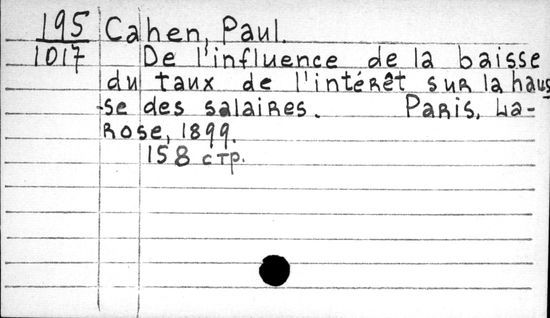 195 Cahen, Paul.
1017 De l'influence de la baisse
du taux de l'intérêt sur la haus-
se des salaires. Paris, La-
rose, 1899.
158 стр.